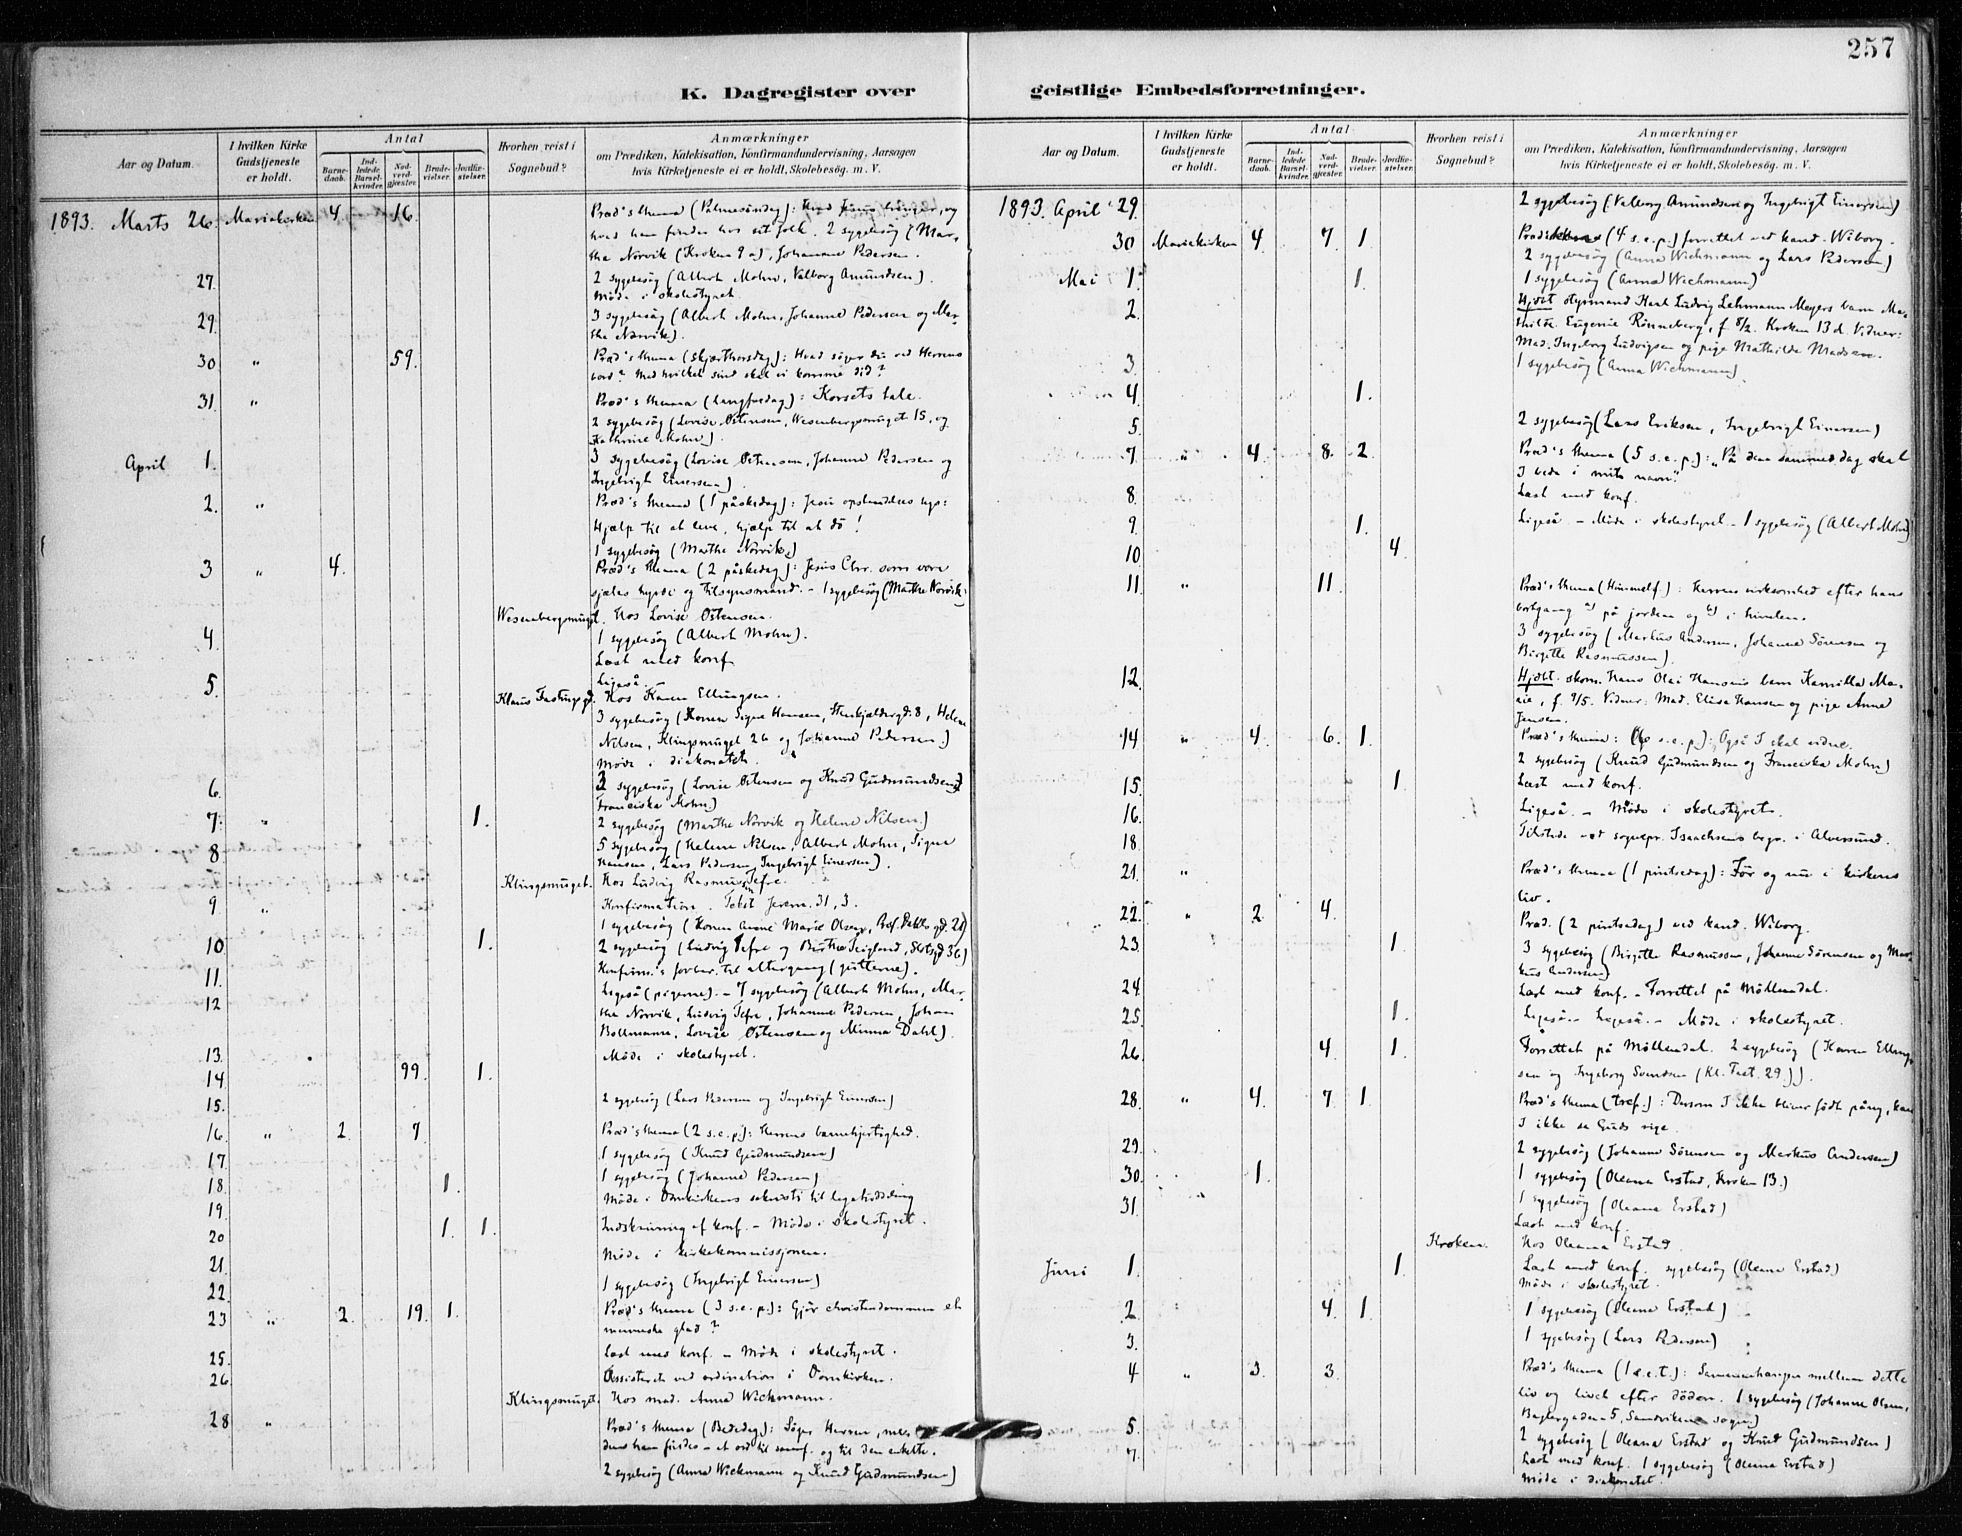 257
K. Dagregister over geistlige Embedsforretninger.
Aar og Datum.
I hvilken Kirke Gudstjeneste er holdt.
Antal
Barnedaab.
Indledede Barselkvinder.
Nadverdgjester.
Brudevielser.
Jordfæstelser.
Hvorhen reist i Sognebud?
Anmærkninger
om Prædiken, Katekisation, Konfirmandundervisning, Aarsagen
hvis Kirketjeneste ei er holdt, Skolebesøg. m. V.
1893. Marts 26. Mariakirken 4. 16. Præd's thema (Palmesöndag): Hvad Jesus bringer, og
hvad han finder hos sit folk. 2 sygebesög (Mar-
the Norvik (Kroken 9 a), Johanne Pedersen.
27. 2 sygebesög (Albert Mohn, Valborg Amundsen).
Möde i skolestyret.
29. 3 sygebesög (Albert Mohn, Johanne Pedersen og Mar-
the Norvik).
30 " 59. Præd's thema (Skjærthorsdag): Hvad söger du ved Herrens
bord? Med hvilket sind skal vi komme did?
31 " Præd's thema (Langfredag): Korsets tale.
2 sygebesög (Lovise Ostensen, Wesenbergsmuget 15, og
Kathrine Mohn).
April 1. 3 sygebesög (Lovise Ostensen, Johanne Pedersen og
Ingebrigt Einersen).
2. " Præd's thema (1 påskedag): Jesu opstandelses
Hjælp til at leve, hjælp til at dö!
1 sygebesög (Marthe Norvik.)
3 " 4. Præd's thema (2 påskedag): Jesus Chr. som vore
sjæles hyrde og tilsynsmand. - 1 sygebesög (Marthe Norvik.)
Wesenbergsmuget. Hos Lovise Ostensen.
4. 1 sygebesög (Albert Mohn).
Læst med konf.
5. Ligeså. -
Klaus Hos Karen Ellingsen.
3 sygebesög (Konen Signe Hansen, 8, Helene
Nilsen, Klingsmuget 26 og Johanne Pedersen.)
Möde i diakonatet.
6. 3 sygebesög (Lovise Ostensen og Knud Gudmundsen,
Franciska Mohn)
7. " 1. 2 sygebesög (Marthe Norvik og Helene Nilsen)
8 5 sygebesög (Helene Nilsen, Albert Mohn, Signe
Hansen, Lars Pedersen, Ingebrigt Einersen).
Klingsmuget. Hos Ludvig Rasmussen Tefre.
9 " Konfirmation. Tekst Jerem. 31, 3.
1 sygebesög (Konen Anne Marie Olsen,
10 1. 2 sygebesög (Ludvig Tefre og
11. Konfirm.'s forber. til altergang (gutterne).
12 Ligeså (pigerne). - 7 sygebesög (Albert Mohn, Mar-
the Norvik, Ludvig Tefre, Johanne Pedersen, Johan
Bollmann, Lovise Ostensen og Minna Dahl).
13. Möde i skolestyret.
14 99. 1.
15. 2 sygebesög (Lars Pedersen og Ingebrigt Einersen)
16. " 2. 7. Præd's thema (2 s.e.p.): Herrens barmhjertighed.
17 1 sygebesög (Knud Gudmundsen)
18. 1. 1 sygebesög (Johanne Pedersen)
19. Möde i Domkirkens sakristi til legatuddeling
20 1. 1. Indskrivning af konf. - Möde i skolestyret.
21. Möde i kirkekommissjonen.
22. 1 sygebesög (Ingebrigt Einersen)
23 " 2. 19. 1. Præd's thema (3 s.e.p.): Gjör christendommen et
menneske glad?
25. Læst med konf. - Möde i skolestyret.
26. Assisteret ved ordination i Domkirken.
Klingsmuget. Hos mad. Anna Wichmann.
28 " Præd's thema (Bededag): Söger Herren, mens
han findes - et ord til samf. og til den enkelte.
2 sygebesög (Anna Wichmann og Knud Gudmundsen)
Aar og Datum.
I hvilken Kirke Gudstjeneste er holdt.
Antal
Barnedaab.
Indledede Barselkvinder.
Nadverdgjester.
Brudevielser.
Jordfæstelser.
Hvorhen reist i Sognebud?
Anmærkninger
om Prædiken, Katekisation, Konfirmandundervisning, Aarsagen
hvis Kirketjeneste ei er holdt, Skolebesög. m. V.
1893. April 29. 2 sygebesög (Valborg Amundsen og Ingebrigt Einersen)
30 Mariekirken 4 7 1. (4 s.e.p.) forrettet ved kand. Wiborg.
2 sygebesög (Anna Wichmann og Lars Pedersen)
Mai 1. 1. 1 sygebesög (Anna Wichmann)
2. Hjdbt. styrmand Karl Ludvig Lehmann Meyers barn Ma-
thilde Eugenie Rönneberg, f. 8/2. Kroken 13 d. Vidner:
Mad. Ingeborg Ludvigsen og pige Mathilde Madsen.
3. 1 sygebesög (Anna Wichmann)
4. 1.
5. 2 sygebesög (Lars Eriksen, Ingebrigt Einersen)
7. " 4. 8. 2. Præd's thema (5 s.e.p.): "På den samme dag skal
I bede i mit navn."
8. Læst med konf.
9. 1. Ligeså. - Möde i skolestyret. - 1 sygebesög (Albert Mohn)
10 4.
11. " 11. Præd's thema (Himmelf.): Herrens virksomhed efter hans
bortgang a) på jorden og b) i himlen.
3 sygebesög (Markus Andersen, Johanne Sörensen og
Birgitte Rasmussen).
12. Hjdbt. skom. Hans Olai Hansens barn Kamilla Ma-
rie, f. 9/5. Vidner: Mad. Elisa Hansen og pige Anne
Jensen.
14 " 4. 6. 1. Præd's thema: (6 s.e.p.): Også I skal vidne.
2 sygebesög (Knud Gudmundsen og Franciska Mohn)
15. 1. Læst med konf.
16. Ligeså. - Möde i skolestyret.
18. Tilstede ved sognepr. Isaachsens begr. i Alversund.
21. " Præd's thema (1 pintsedag): Før og nu i kirkens
liv.
22. " 2 4. Præd. (2 pintsedag) ved kand. Wiborg.
23. 1. 3 sygebesög (Birgitte Rasmussen, Johanne Sörensen og Mar-
kus Andersen)
24. Læst med konf. - Forrettet på Möllendal.
25. 1. Ligeså. - Ligeså. - Möde i skolestyret.
26. 4. 1. Forrettet på Möllendal. 2 sygebesög (Karen Elling-
sen og Ingeborg Svendsen (Kl. Fast. 29)).
28. " 4. 7 1. Præd's thema (tref.): Dersom I ikke bliver födt påny, kan
I ikke se Guds rige.
29. 2 sygebesög (Johanne Sörensen og Markus Andersen)
30. 1. 1 sygebesög (Oleana Erstad, Kroken 13.)
31. 1 sygebesög (Oleana Erstad)
Læst med konf.
Kroken. Hos Oleana Erstad.
Juni 1. 1. Læst med konf. sygebesög (Oleana Erstad)
Möde i skolestyret.
2 " 4 1. 1 sygebesög (Oleana Erstad)
3. 1 sygebesög (Lars Pedersen)
4 " 3. 3. Præd's thema (1 s.e.t.): Sammenhængen mellem dette
liv og livet efter döden. 1 sygebesög (Johanne Olsen,
5, Sandvikens sogn.)
5. 2 sygebesög (Oleana Erstad og Knud Gudmundsen)
7. Læst med konf. 1 sygebesög (Oleana Erstad)
Möde i diakonatet.